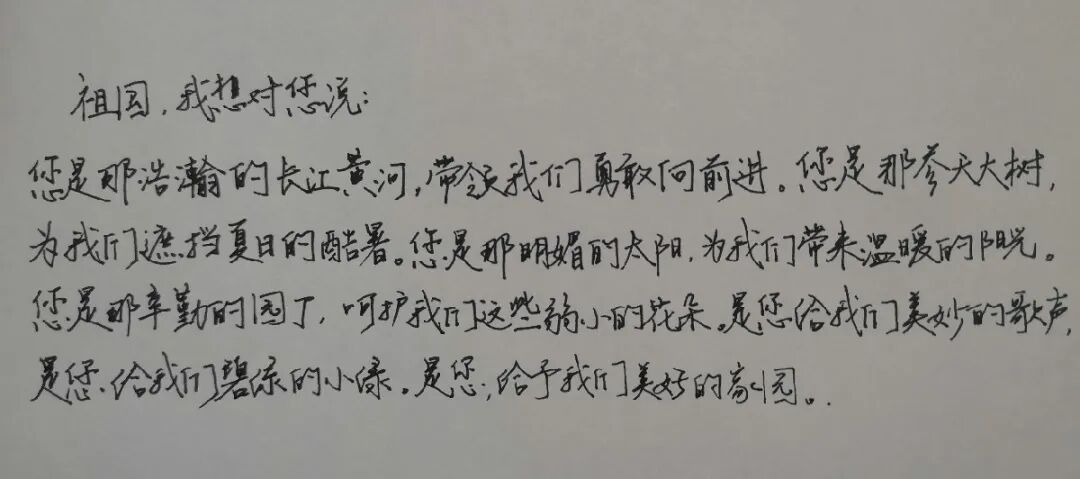 祖国，我想对您说：
您是那浩瀚的长江黄河，带领我们勇敢向前进。您是那参天大树，
为我们遮挡夏日的酷暑。您是那明媚的太阳，为我们带来温暖的阳光。
您是那辛勤的园丁，呵护我们这些弱小的花朵。是您给我们美妙的歌声，
是您、给我们碧绿的小绿。是您，给予我们美好的家园。